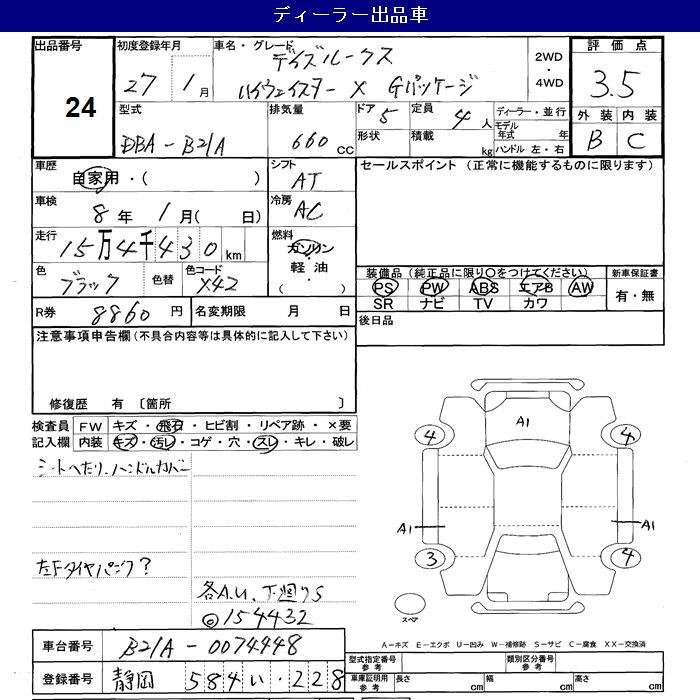 ディーラー出品車
出品番号 24
初度登録年月 27 1月
車名・グレード デイズルークス
ハイウェイスター X Gパッケージ
2WD・4WD
評価点 3.5
外装 内装
B C
型式 DBA-B21A
排気量 660cc
ドア 5 定員 4人
形状 積載 kg
ディーラー・並行
モデル年式 年
ハンドル 左・右
車歴 自家用・( )
シフト AT
セールスポイント (正常に機能するものに限ります)
車検 8年 1月( 日)
冷房 AC
走行 15万4千430km
燃料 ガソリン・軽油・( )
色 ブラック 色替 色コード X42
装備品(純正品に限り○をつけてください) 新車保証書
PS PW ABS エアB AW 有・無
SR ナビ TV カワ
R券 8860円 名変期限 月 日
後日品
注意事項申告欄(不具合内容等は具体的に記入して下さい)
修復歴 有 〔箇所 〕
検査員 FW キズ・飛石・ヒビ割・リペア跡・×要
記入欄 内装 キズ・汚レ・コゲ・穴・スレ・キレ・破レ
シートへたり、ハンドルカバー
左Fタイヤパンク?
各A.U、下廻りS
◎154432
A1
4 4
A1 A1
3 4
スペア
A-キズ E-エクボ U-凹み W-補修跡 S-サビ C-腐食 XX-交換済
車台番号 B21A-0074448
型式指定番号 参考 類別区分番号 参考
登録番号 静岡 584 い 228
車庫証明用 参考 長さ cm 幅 cm 高さ cm